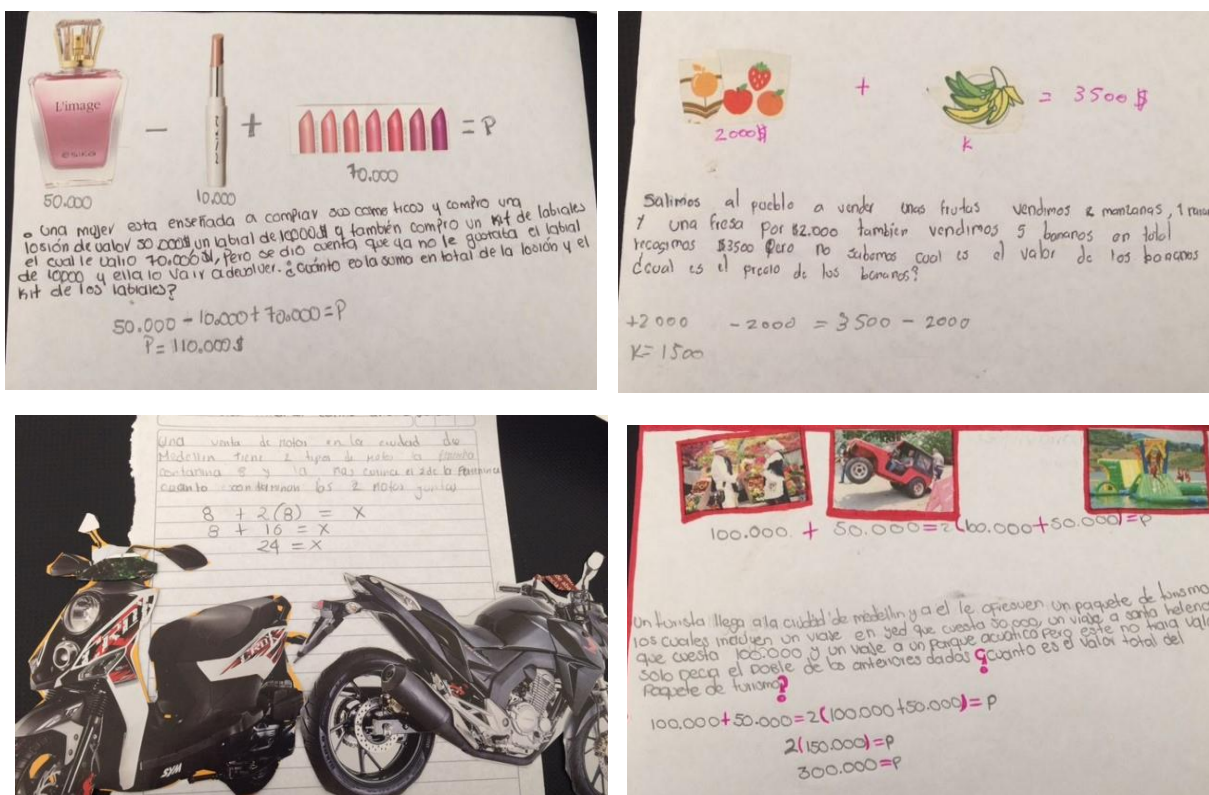 L'image
esika
− + = P
70.000
50.000 10.000
Una mujer esta enseñada a comprar sus cosme ticos y compro una
losión de valor 50.000$ un labial de 10000$ y también compro un kit de labiales
el cual le valio 70.000$, pero se dio cuenta que ya no le el labial
de 10000 y ella lo va ir a devolver. ¿cuánto es la suma en total de la losión y el
kit de los labiales?
50.000 - 10.000 + 70.000 = P
P = 110.000$
+ = 3500$
2000$ K
Salimos al pueblo a vender unas frutas vendimos 2 manzanas, 1
y una fresa por $2.000 tambien vendimos 5 bananos en total
recogimos $3500 pero no sabemos cual es el valor de los bananos
¿cual es el precio de los bananos?
+2000 - 2000 = 3500 - 2000
K= 1500
Una venta de motos en la ciudad de
Medellin tiene 2 tipos de moto la
contamina 8 y la mas el 2 de la
cuanto contaminan los 2 motos juntas
8 + 2(8) = x
8 + 16 = x
24 = x
SYM
100.000 + 50.000 = 2(100.000 + 50.000) = P
Un turista llega a la ciudad de medellin y a el le ofresen un paquete de turismo
los cuales incluyen un viaje en yed que cuesta 50.000, un viaje a santa helena
que cuesta 100.000 y un viaje a un parque acuatico pero este no traia valor
solo decia el doble de los anteriores dados ¿cuanto es el valor total del
paquete de turismo?
100.000 + 50.000 = 2(100.000 + 50.000) = P
2(150.000) = P
300.000 = P